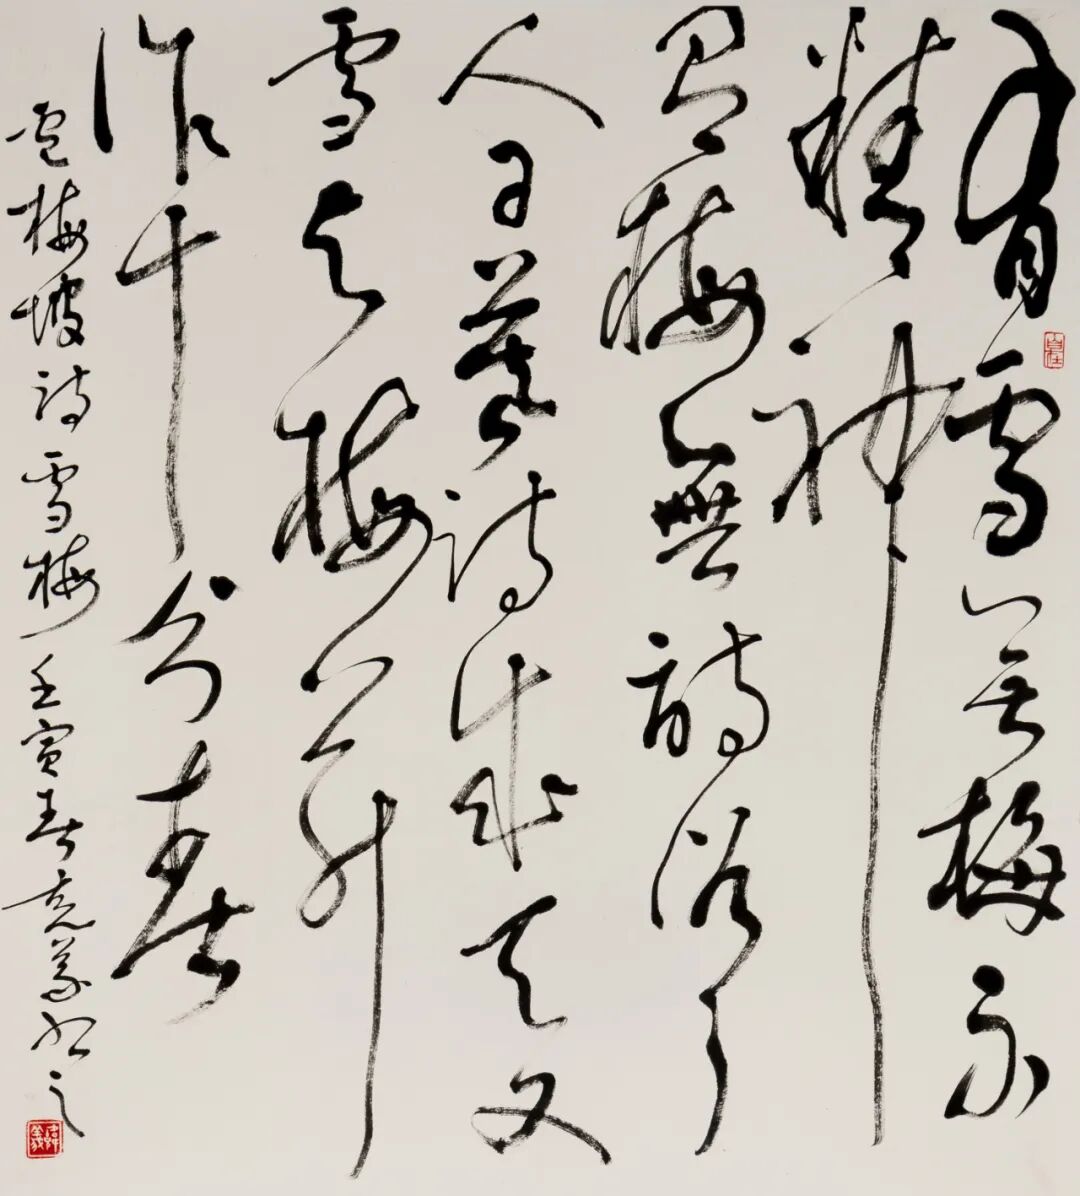 有雪无梅不
精神
有梅無詩俗了
人日暮诗成天又
雪与梅并
作十分春
卢梅坡诗雪梅壬寅春克义书之